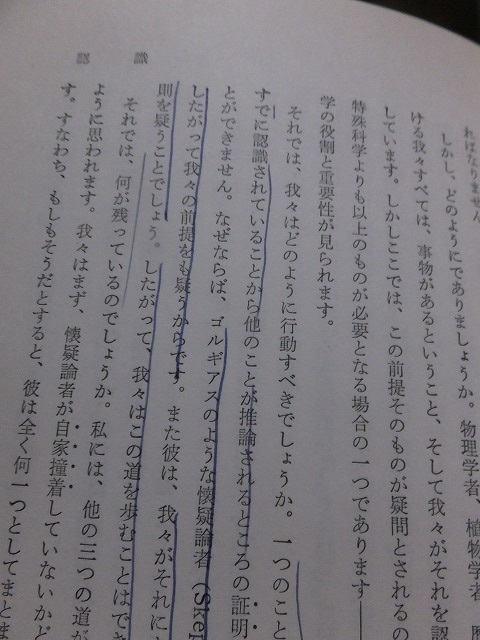 認識
ればなりません
しかし、どのようにでありましょうか。物理学者、植物学者、
ける我々すべては、事物があるということ、そして我々がそれを認
しています。しかしここでは、この前提そのものが疑問とされるの
特殊科学よりも以上のものが必要となる場合の一つであります――
学の役割と重要性が見られます。
それでは、我々はどのように行動すべきでしょうか。一つのこと
すでに認識されていることから他のことが推論されるところの証明
とができません。なぜならば、ゴルギアスのような懐疑論者(Skep
したがって我々の前提をも疑うからです。また彼は、我々がそれに
則を疑うことでしょう。したがって、我々はこの道を歩むことはでき
それでは、何が残っているのでしょうか。私には、他の三つの道が
ように思われます。我々はまず、懐疑論者が自家撞着していないかど
す。すなわち、もしもそうだとすると、彼は全く何一つとしてまとま